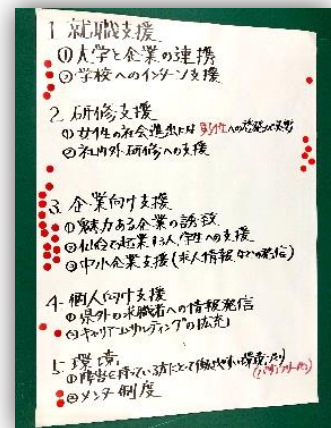 1. 就職支援
①大学と企業の連携
②学校へのインターン支援
2. 研修支援
①女性の社会進出には男性への啓発が必要
②社内外研修への支援
3. 企業向け支援
①魅力ある企業の誘致
②起業する人、学生への支援
③中小企業支援(求人情報などの発信)
4. 個人向け支援
①県外の求職者への情報発信
②キャリアコンサルティングの拡充
5. 環境
①障害を持っている方にとって働きやすい環境づくり
②メンター制度